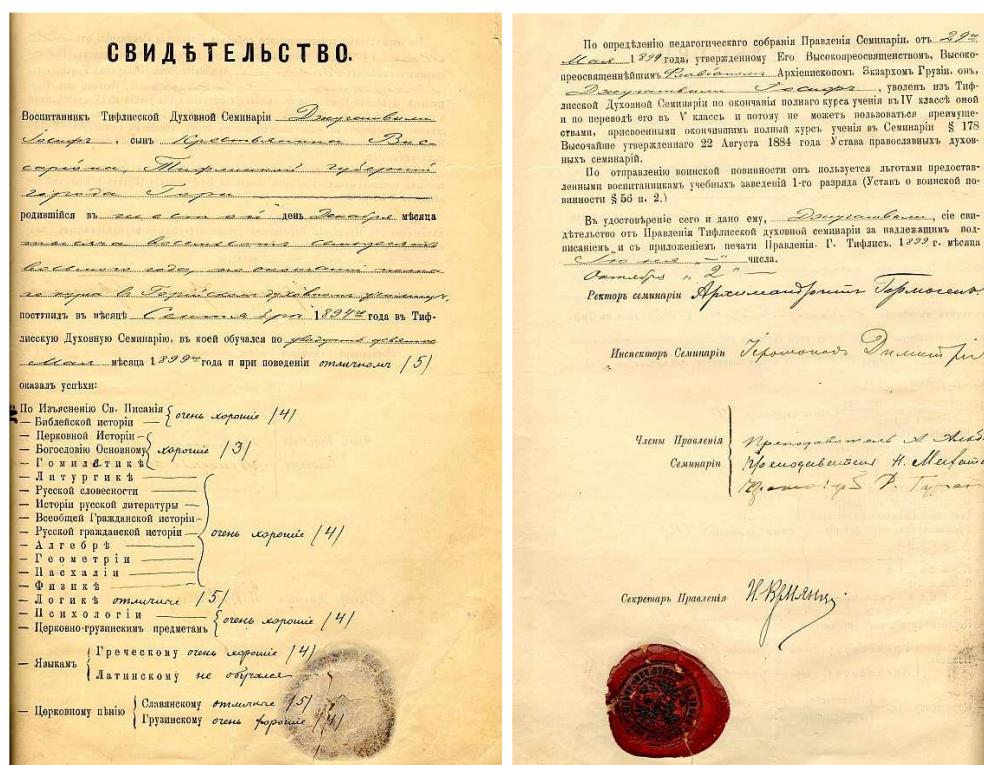 СВИДѢТЕЛЬСТВО.
Воспитанникъ Тифлисской Духовной Семинаріи Джугашвили
Іосифъ, сынъ Крестьянина Вис-
саріона, Тифлисской губерніи
города Гори
родившійся въ шестой день Декабря мѣсяца
тысяча восемьсотъ семьдесятъ
восьмого года, по окончаніи полна-
го курса въ Горійскомъ духовномъ училищѣ,
поступилъ въ мѣсяцѣ Сентябрѣ 1894го года въ Тиф-
лисскую Духовную Семинарію, въ коей обучался по двадцать девятое
Мая мѣсяца 1899го года и при поведеніи отличномъ /5/
оказалъ успѣхи:
По Изъясненію Св. Писанія
— Библейской исторіи — очень хорошіе /4/
— Церковной Исторіи
— Богословію Основному хорошіе /3/
— Гомилетикѣ
— Литургикѣ
— Русской словесности
— Исторіи русской литературы
— Всеобщей Гражданской исторіи
— Русской гражданской исторіи очень хорошіе /4/
— Алгебрѣ
— Геометріи
— Пасхаліи
— Физикѣ
— Логикѣ отличные /5/
— Психологіи очень хорошіе /4/
— Церковно-грузинскимъ предметамъ
— Языкамъ
Греческому очень хорошіе /4/
Латинскому не обучался
— Церковному пѣнію
Славянскому отличные /5/
Грузинскому очень хорошіе /4/
По опредѣленію педагогическаго собранія Правленія Семинаріи, отъ 29го
Мая 1899 года, утвержденному Его Высокопреосвященствомъ, Высоко-
преосвященнѣйшимъ Флавіаномъ Архіепископомъ Экзархомъ Грузіи, онъ,
Джугашвили Іосифъ, уволенъ изъ Тиф-
лисской Духовной Семинаріи по окончаніи полнаго курса ученія въ IV классѣ оной
и по переводѣ его въ V классъ и потому не можетъ пользоваться преимуще-
ствами, присвоенными окончившимъ полный курсъ ученія въ Семинаріи § 178
Высочайше утвержденнаго 22 Августа 1884 года Устава православныхъ духов-
ныхъ семинарій.
По отправленію воинской повинности онъ пользуется льготами предостав-
ленными воспитанникамъ учебныхъ заведеній 1-го разряда (Уставъ о воинской по-
винности § 56 п. 2.)
Въ удостовѣреніе сего и дано ему, Джугашвили, сіе сви-
дѣтельство отъ Правленія Тифлисской духовной семинаріи за надлежащимъ под-
писаніемъ и съ приложеніемъ печати Правленія. Г. Тифлисъ. 1899 г. мѣсяца
Іюня „—" числа.
Октября „2" —
Ректоръ семинаріи Архимандритъ Гермогенъ.
Инспекторъ Семинаріи Іеромонахъ Димитрій
Члены Правленія
Семинаріи
Преподаватель А.
Преподаватель Н.
Р.
Секретарь Правленія